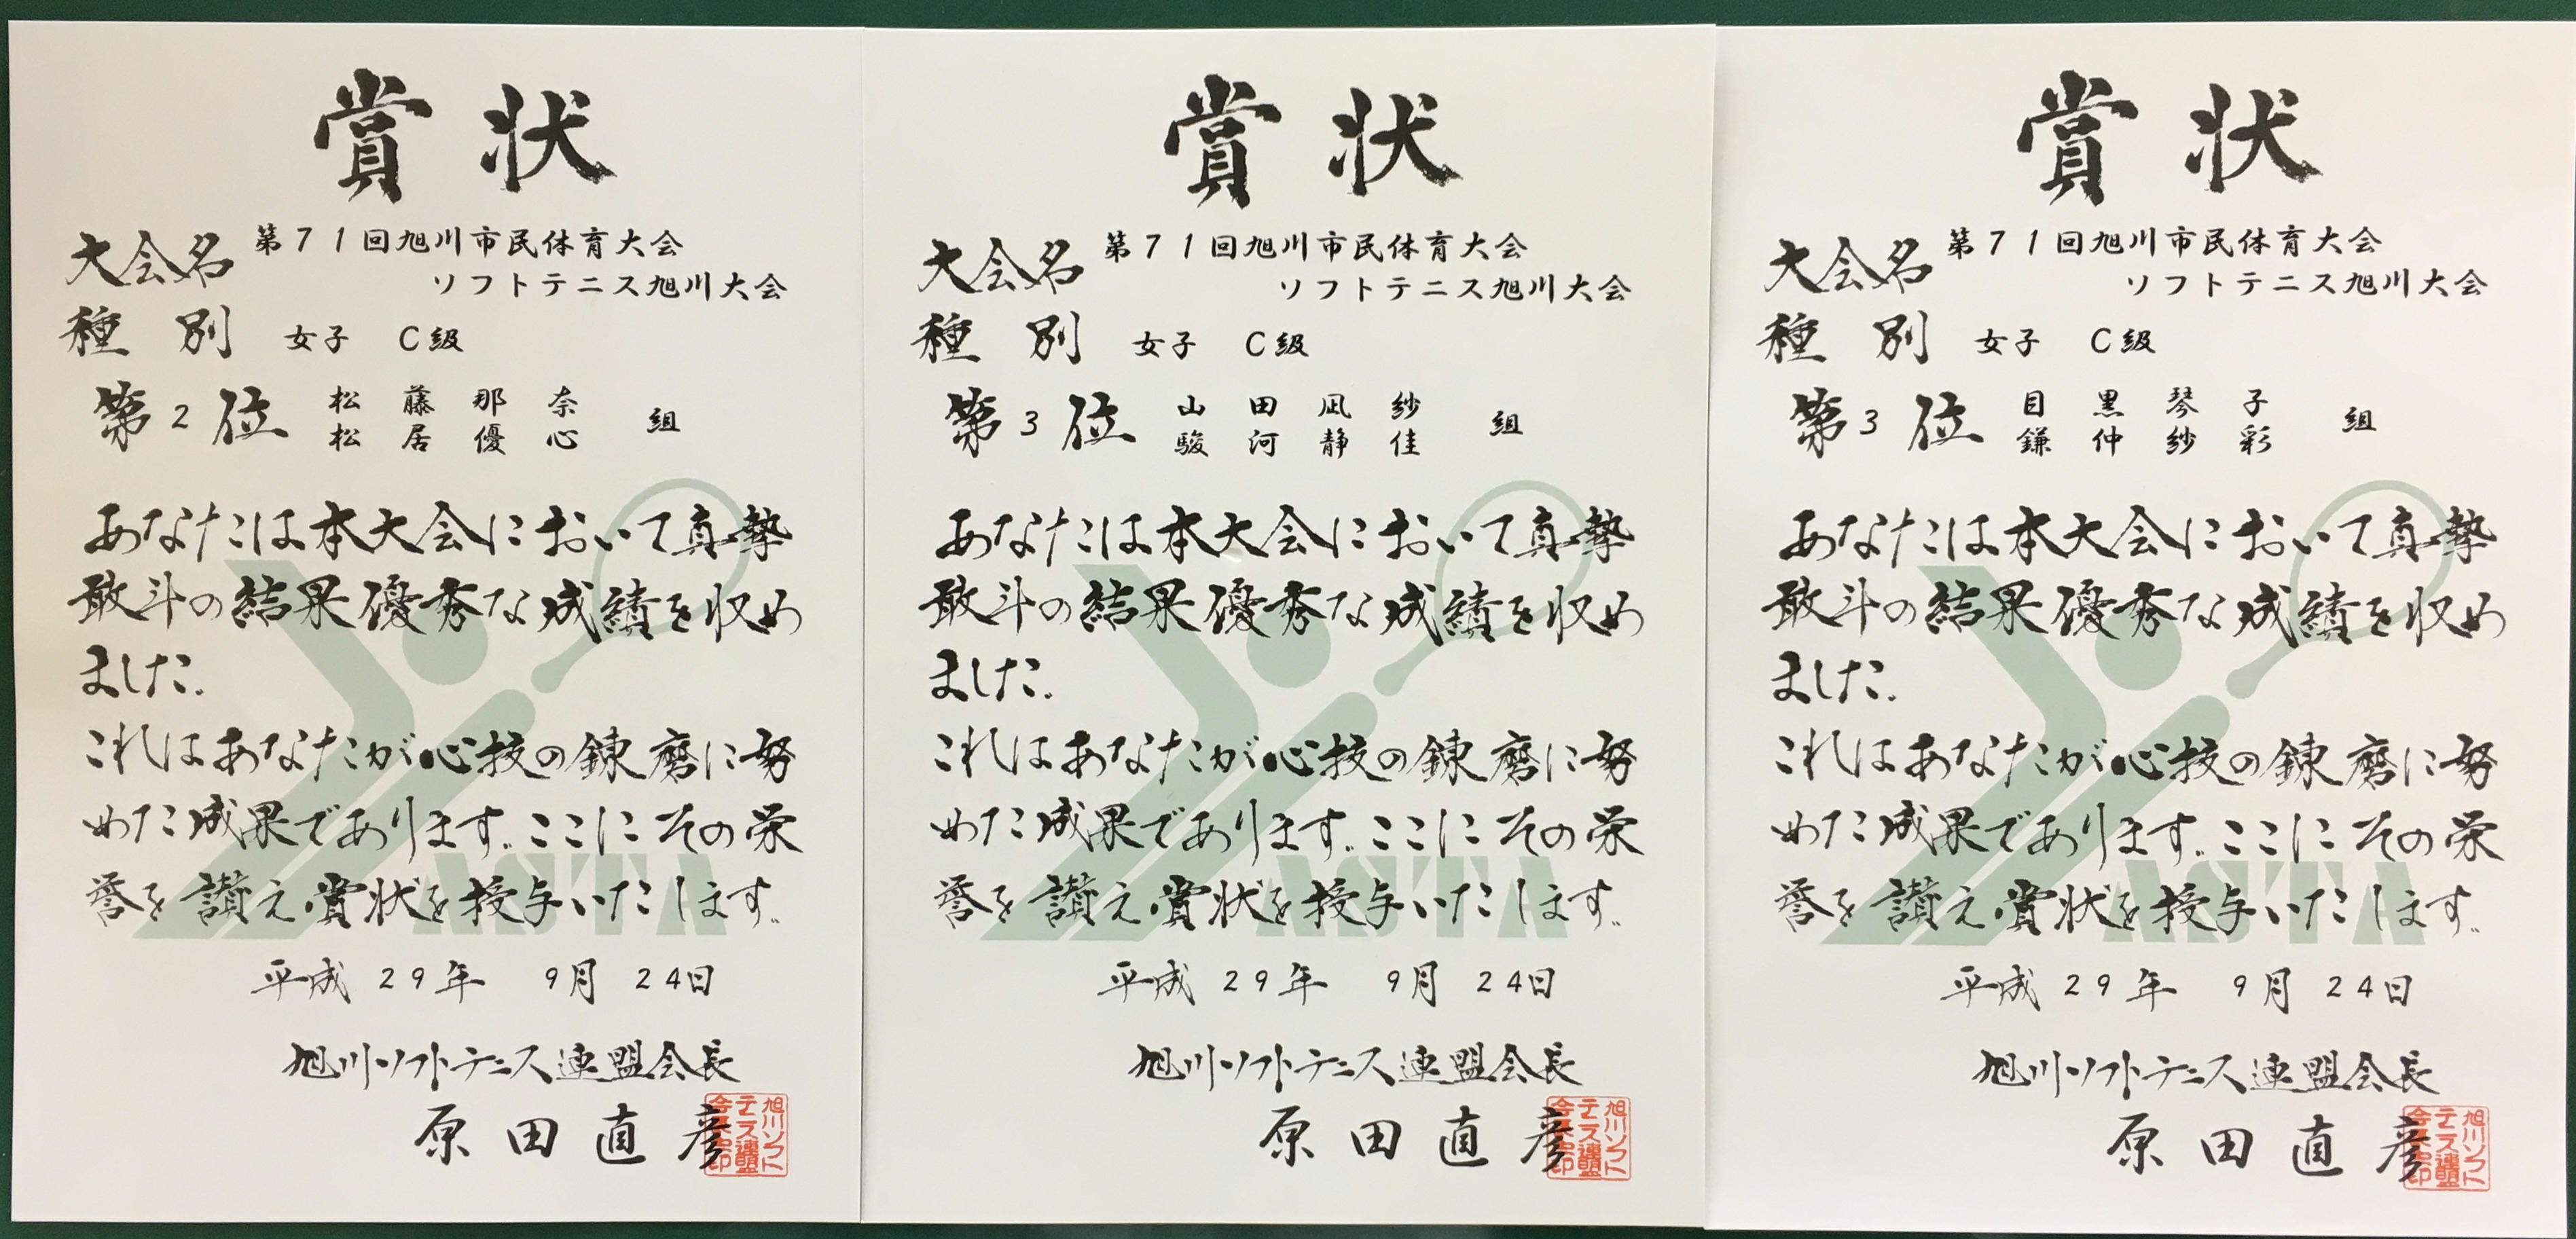 賞状
大会名 第71回旭川市民体育大会
ソフトテニス旭川大会
種別 女子 C級
第2位 松藤那奈 組
松居優心
あなたは本大会において真摯
敢斗の結果優秀な成績を収め
ました。
これはあなたが心技の錬磨に努
めた成果であります。ここにその栄
誉を讃え賞状を授与いたします。
ASTA
平成 29年 9月 24日
旭川ソフトテニス連盟会長
原田直彦
旭川ソフト
テニス連盟
会長之印
賞状
大会名 第71回旭川市民体育大会
ソフトテニス旭川大会
種別 女子 C級
第3位 山田凪紗 組
駿河静佳
あなたは本大会において真摯
敢斗の結果優秀な成績を収め
ました。
これはあなたが心技の錬磨に努
めた成果であります。ここにその栄
誉を讃え賞状を授与いたします。
ASTA
平成 29年 9月 24日
旭川ソフトテニス連盟会長
原田直彦
旭川ソフト
テニス連盟
会長之印
賞状
大会名 第71回旭川市民体育大会
ソフトテニス旭川大会
種別 女子 C級
第3位 目黒琴子 組
鎌仲紗彩
あなたは本大会において真摯
敢斗の結果優秀な成績を収め
ました。
これはあなたが心技の錬磨に努
めた成果であります。ここにその栄
誉を讃え賞状を授与いたします。
ASTA
平成 29年 9月 24日
旭川ソフトテニス連盟会長
原田直彦
旭川ソフト
テニス連盟
会長之印